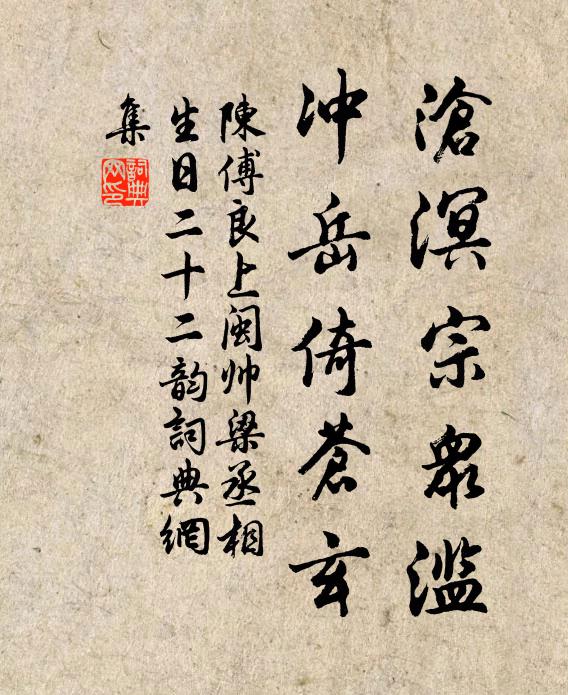 滄溟宗衆濫
冲岳倚蒼玄
陳傅良上閩帅梁丞相
生日二十二韵詞典網
集
詞典
网印